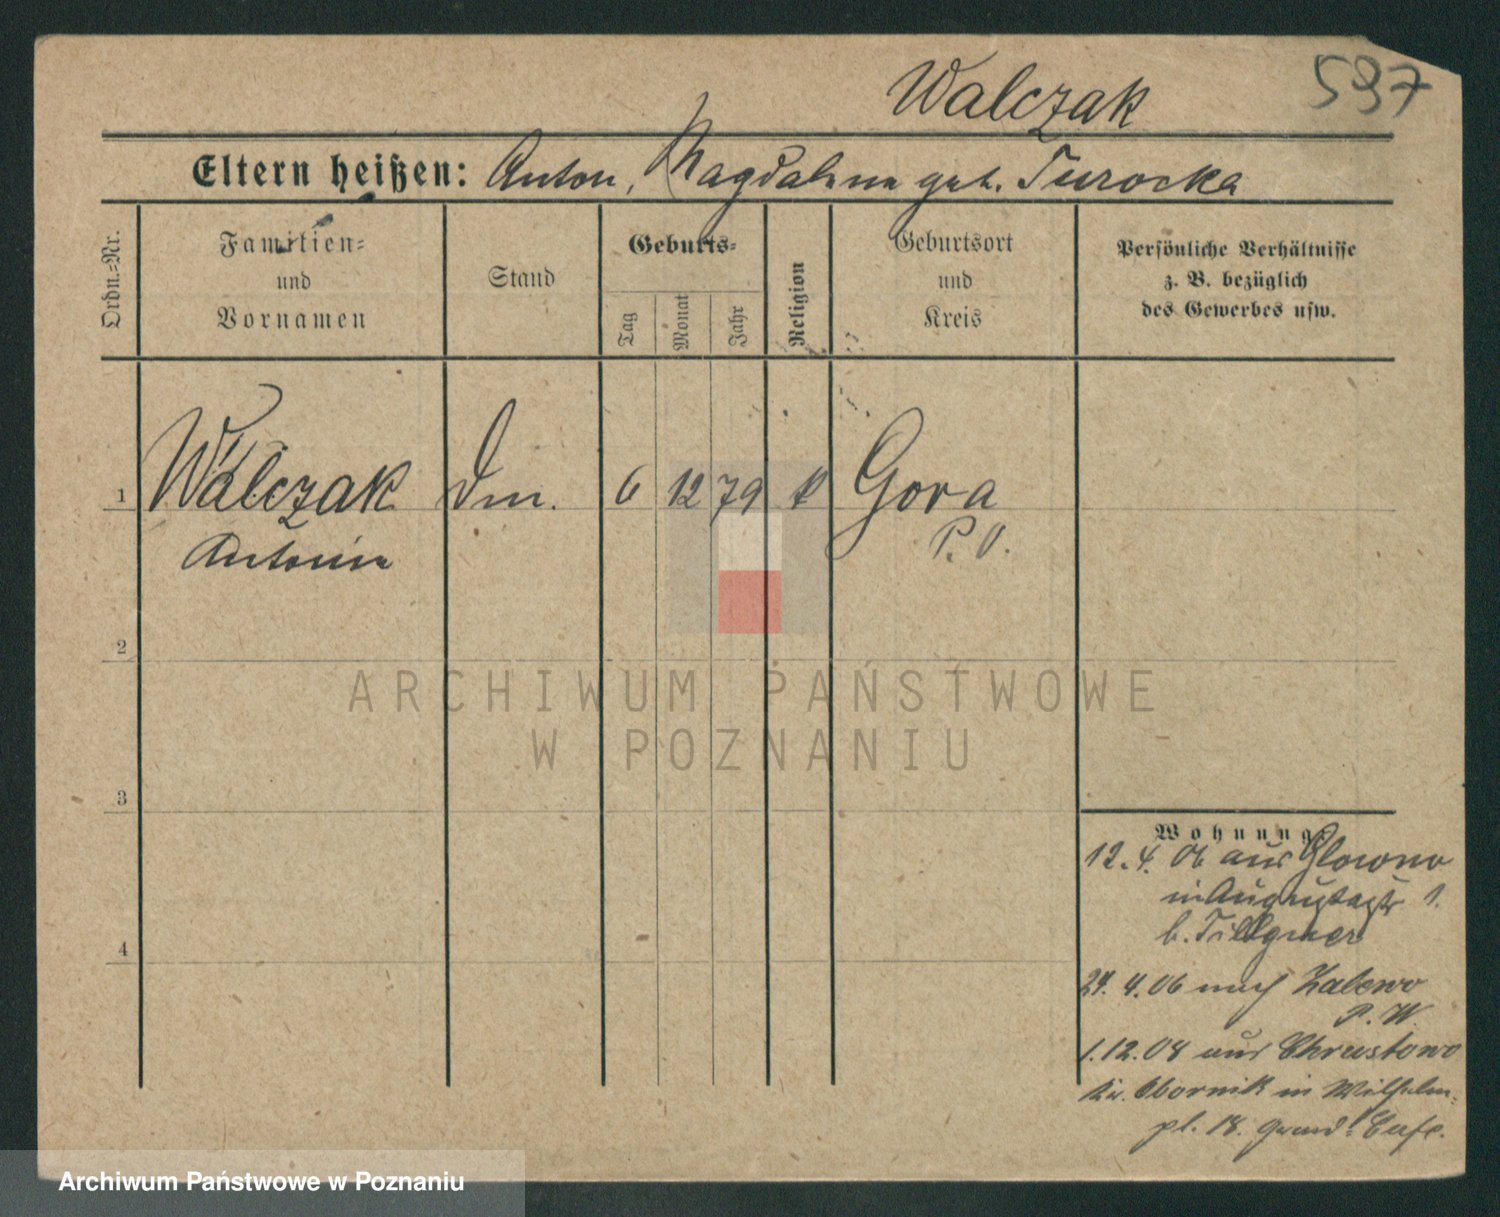 Walczak
597
Eltern heißen: Anton, Magdalena geb. Turocka
Ordn.=Nr.
Familien=
und
Vornamen
Stand
Geburts=
Tag
Monat
Jahr
Religion
Geburtsort
und
Kreis
Persönliche Verhältnisse
z. B. bezüglich
des Gewerbes usw.
1 Walczak Dm. 6 12 79 k Gora
Antonie P. O.
2
3
4
ARCHIWUM PAŃSTWOWE
W POZNANIU
Wohnung.
12. 4. 06 aus Glowno
in Augustastr 1.
b. Tillgner
24. 4. 06 nach Zalewo
P. W.
1.12.08 aus Chrustowo
Kr. Obornik in Wilhelm=
pl. 18. Grand-Cafe.
Archiwum Państwowe w Poznaniu